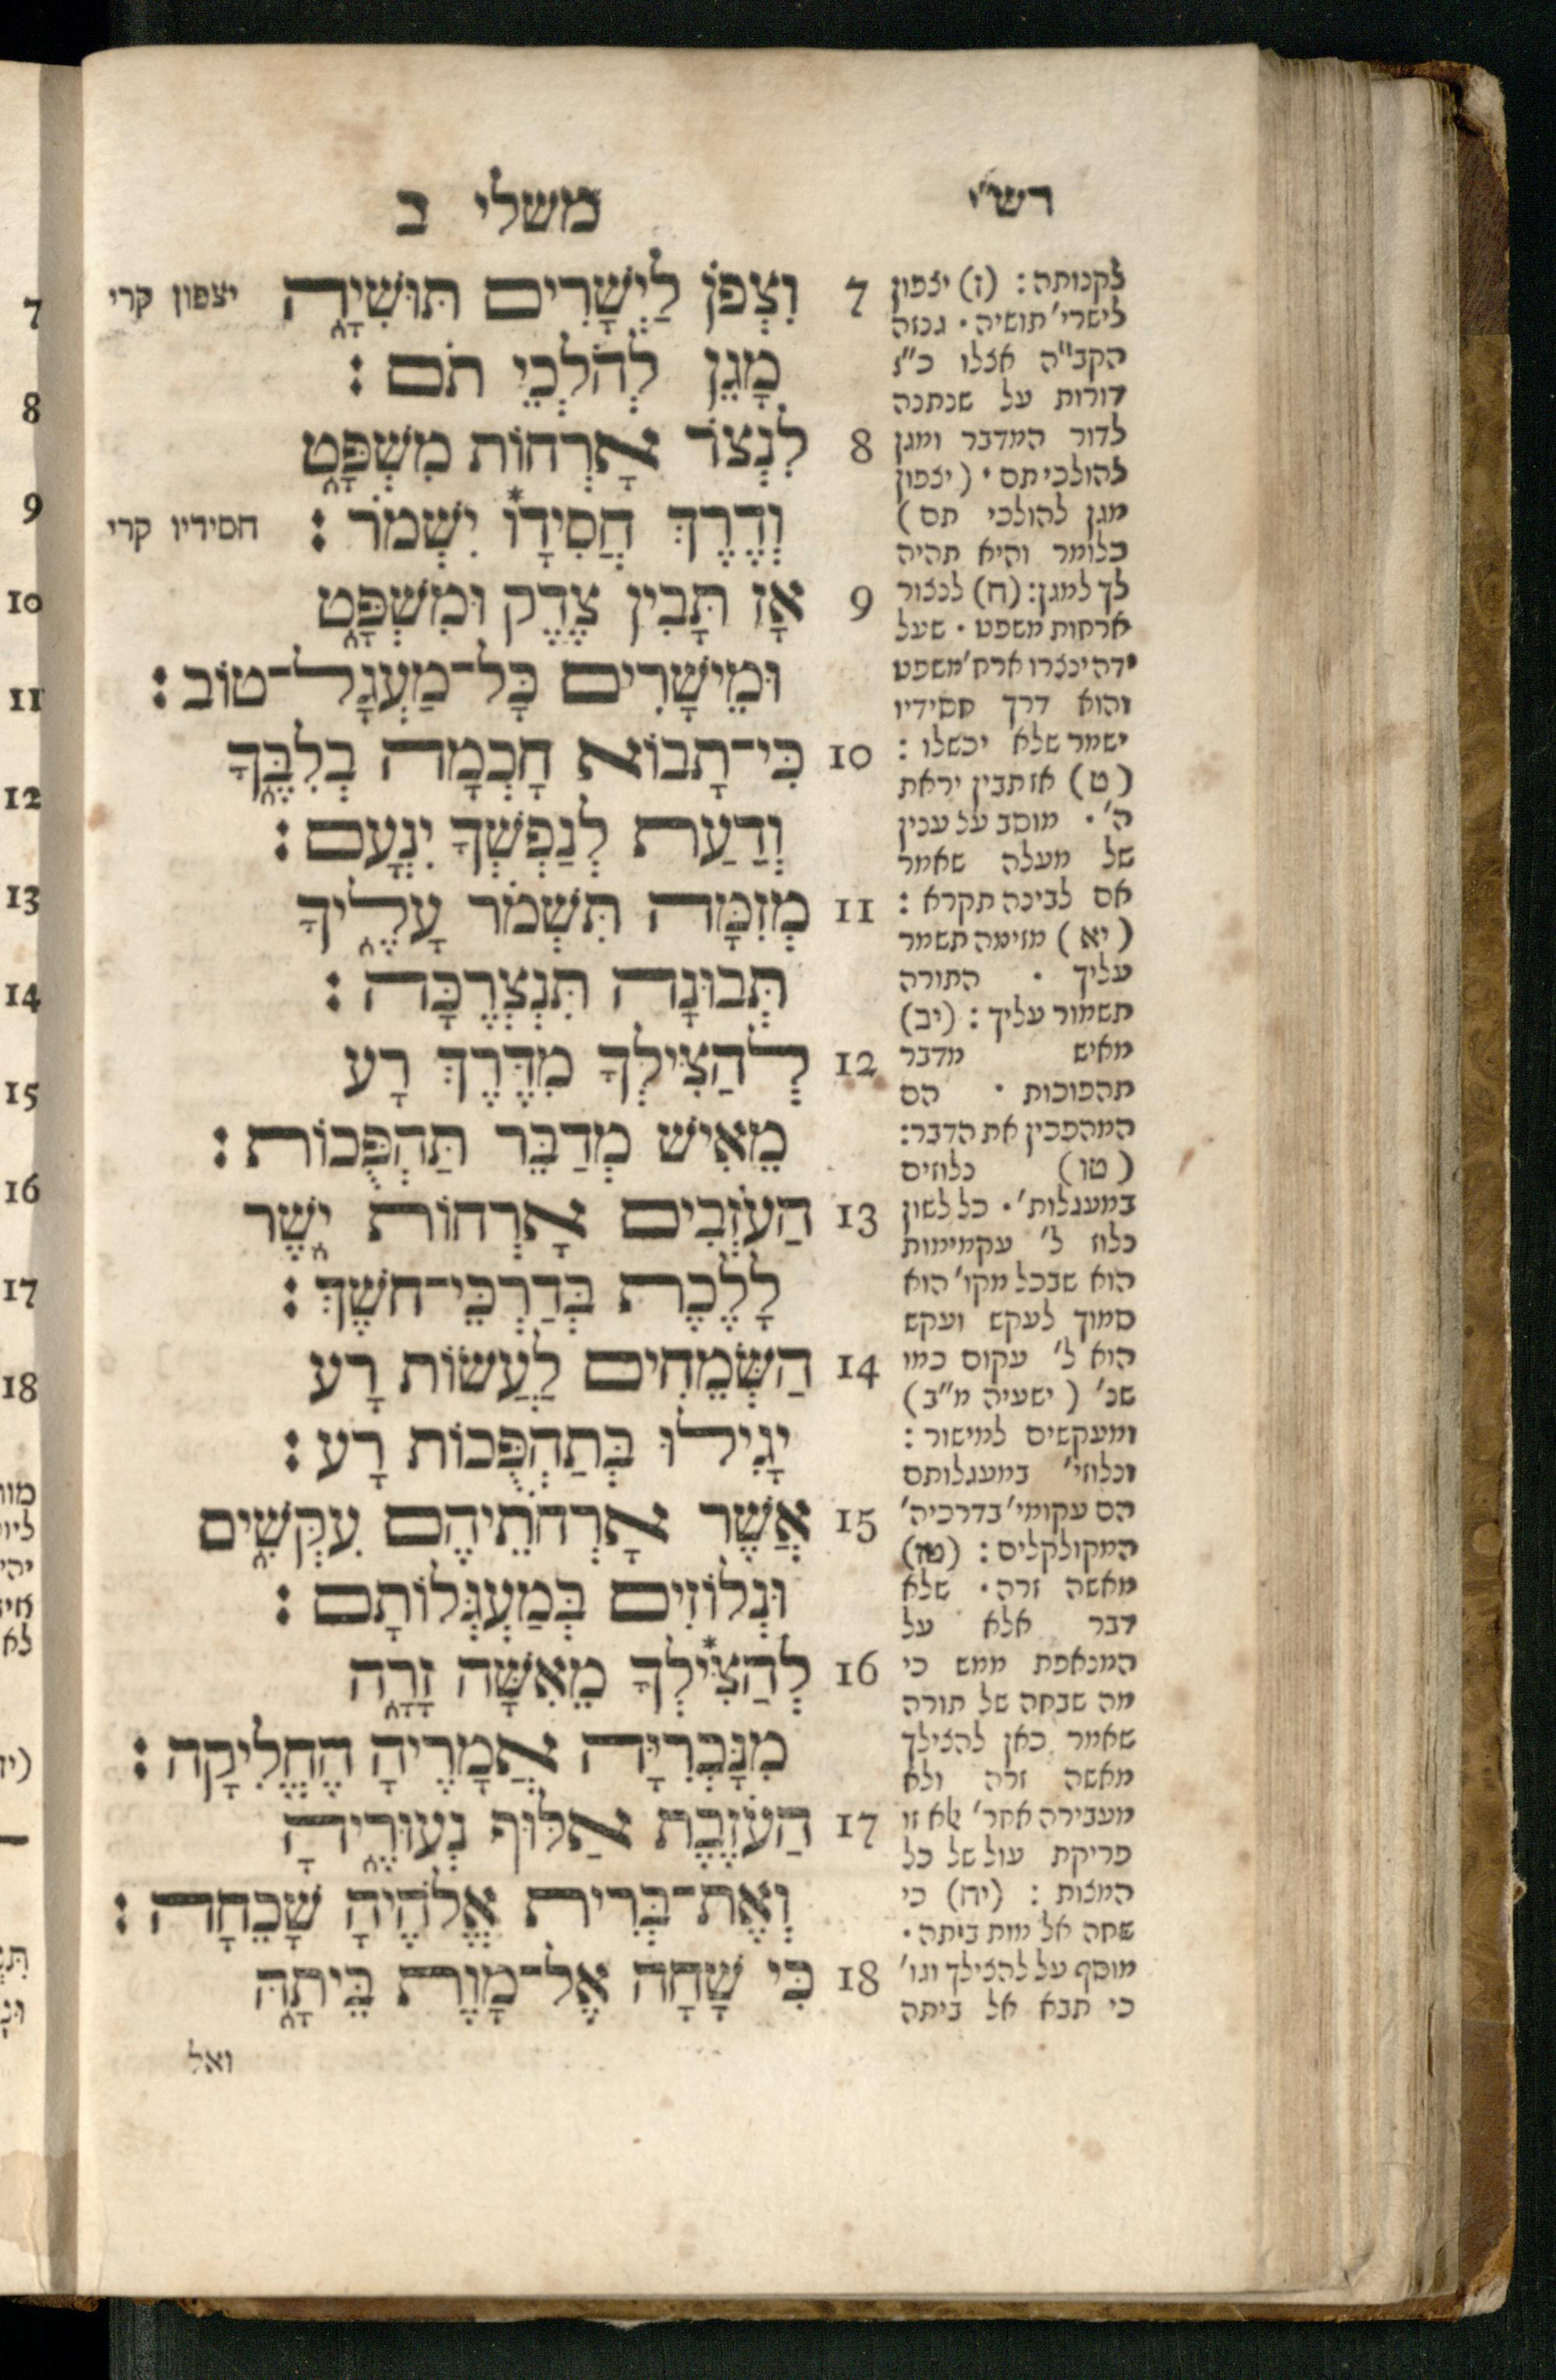 רש״י
משלי ב
וִצְפֹּן לַיְשָׁרִים תּוּשִׁיָּ֑ה 7
יצפון קרי
מָגֵן לְהֹלְכֵי תֹם :
לִנְצֹר אָרְחוֹת מִשְׁפָּ֑ט 8
וְדֶרֶךְ חֲסִידָו֯ יִשְׁמֹר :
חסידיו קרי
אָז תָּבִין צֶדֶק וּמִשְׁפָּ֑ט 9
וּמֵישָׁרִים כָּל־מַעְגַּל־טוֹב :
כִּי־תָבוֹא חָכְמָה בְלִבֶּ֑ךָ 10
וְדַעַת לְנַפְשְׁךָ יִנְעָם :
מְזִמָּה תִּשְׁמֹר עָלֶ֑יךָ 11
תְּבוּנָה תִּנְצְרֶכָּה :
לְהַצִּילְךָ מִדֶּרֶךְ רָע 12
מֵאִישׁ מְדַבֵּר תַּהְפֻּכוֹת :
הַעֹזְבִים אָרְחוֹת יֹ֑שֶׁר 13
לָלֶכֶת בְּדַרְכֵי־חֹשֶׁךְ :
הַשְּׂמֵחִים לַעֲשׂוֹת רָע 14
יָגִילוּ בְּתַהְפֻּכוֹת רָע :
אֲשֶׁר אָרְחֹתֵיהֶם עִקְּשִׁ֑ים 15
וּנְלוֹזִים בְּמַעְגְּלוֹתָם :
לְהַצִּ*ילְךָ מֵאִשָּׁה זָרָ֑ה 16
מִנָּכְרִיָּה אֲמָרֶיהָ הֶחֱלִיקָה :
הַעֹזֶבֶת אַלּוּף נְעוּרֶ֑יהָ 17
וְאֶת־בְּרִית אֱלֹהֶיהָ שָׁכֵחָה :
כִּי שָׁחָה אֶל־מָוֶת בֵּיתָ֑הּ 18
ואל
לקנותה : (ז) יצפון
לישרי׳ תושיה . גנזה
הקב״ה אצלו כ״ו
דורות על שנתנה
לדור המדבר ומגן
להולכי תם . (יצפון
מגן להולכי תם)
כלומר והיא תהיה
לך למגן : (ח) לנצור
ארחות משפט . שעל
ידה ינצרו ארח׳ משפט
והוא דרך חסידיו
ישמר שלא יכשלו :
(ט) אז תבין יראת
ה׳ . מוסב על ענין
של מעלה שאמר
אם לבינה תקרא :
(יא) מזימה תשמר
עליך . התורה
תשמור עליך : (יב)
מאיש מדבר
תהפוכות . הם
המהפכין את הדבר :
(טו) נלוזים
במעגלות׳ . כל לשון
נלוז ל׳ עקמימות
הוא שבכל מקו׳ הוא
סמוך לעקש ועקש
הוא ל׳ עקום כמו
שנ׳ (ישעיה מ״ב)
ומעקשים למישור :
ונלוזי׳ במעגלותם
הם עקומי׳ בדרכיה׳
המקולקלים : (טז)
מאשה זרה . שלא
דבר אלא על
המנאפת ממש כי
מה שבחה של תורה
שאמר כאן להצילך
מאשה זרה ולא
מעבירה אחר׳ אלא זו
פריקת עול של כל
המצות : (יח) כי
שחה אל מות ביתה .
מוסף על להצילך וגו׳
כי תבא אל ביתה
7
8
9
10
11
12
13
14
15
16
17
18